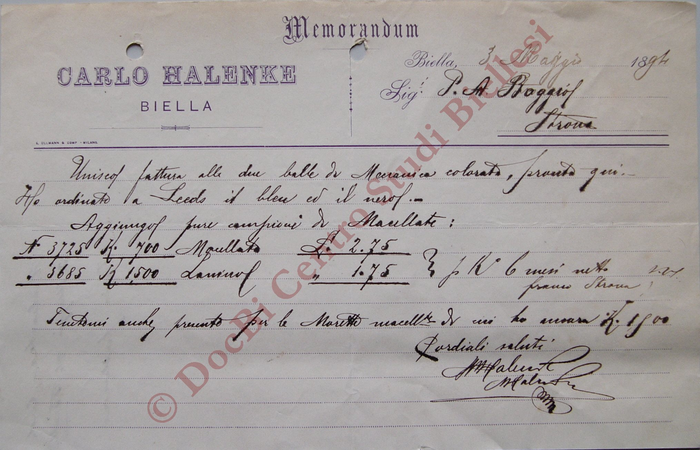 Memorandum
CARLO HALENKE
BIELLA
Biella, 3 Maggio 1894
Sig.r P. A. Boggio
Strona
Unisco fattura alle due balle di Meccanica colorata, pronta qui. –
Ho ordinato a Leeds il bleu ed il nero. –
Aggiungo pure campioni di Macellate :
N 3725 K. 700 £. 2.75
" 3685 K 1,500 " 1.75 } p K° 6 mesi netto
franco Strona
anche presente per le Morette macell.te di cui ho ancora K. 1500
Cordiali saluti
© DocBi Centro Studi Biellesi